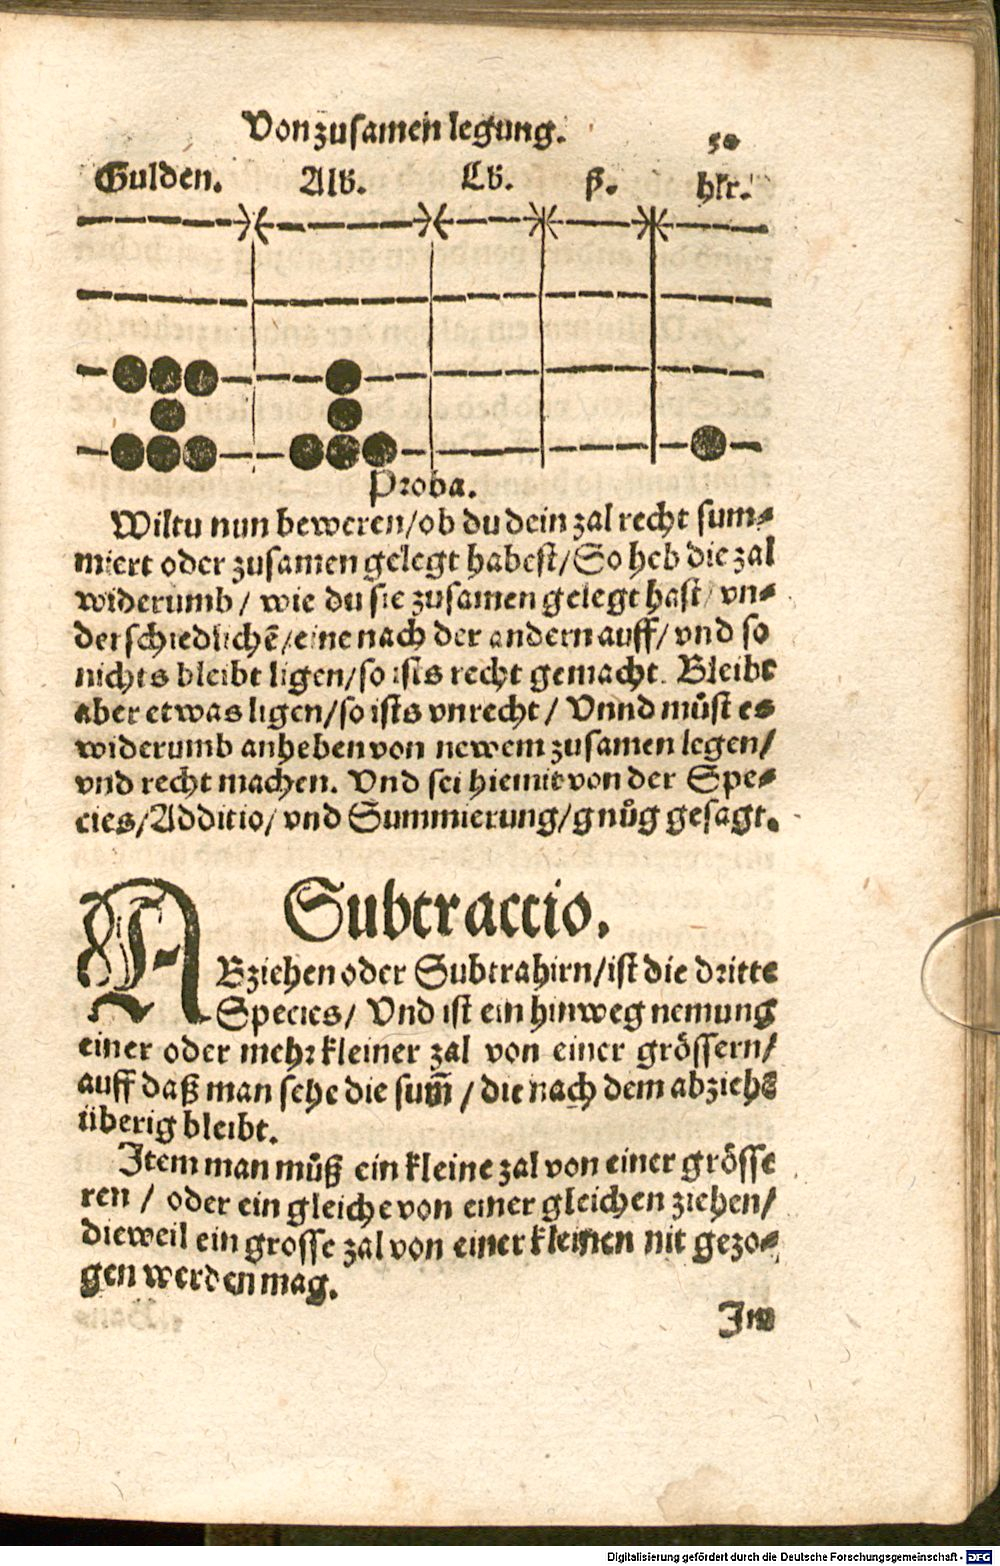 Von zusamen legung.
50
Gulden. Alb. Lb. ß. hlr.
Proba.
Wiltu nun beweren/ob du dein zal recht sum-
miert oder zusamen gelegt habest/So heb die zal
widerumb / wie du sie zusamen gelegt hast/ vn-
derschiedlichē/eine nach der andern auff/ vnd so
nichts bleibt ligen/so ists recht gemacht. Bleibt
aber etwas ligen/so ists vnrecht / Vnnd můst es
widerumb anheben von newem zusamen legen/
vnd recht machen. Vnd sei hiemit von der Spe-
cies/Additio/ vnd Summierung/gnůg gesagt.
Subtractio.
ABziehen oder Subtrahirn/ist die dritte
Species/ Vnd ist ein hinweg nemung
einer oder mehr kleiner zal von einer grössern/
auff daß man sehe die sum̄ / die nach dem abziehē
überig bleibt.
Item man můß ein kleine zal von einer grösse
ren / oder ein gleiche von einer gleichen ziehen/
dieweil ein grosse zal von einer kleinen nit gezo-
gen werden mag.
Im
Digitalisierung gefördert durch die Deutsche Forschungsgemeinschaft - DFG